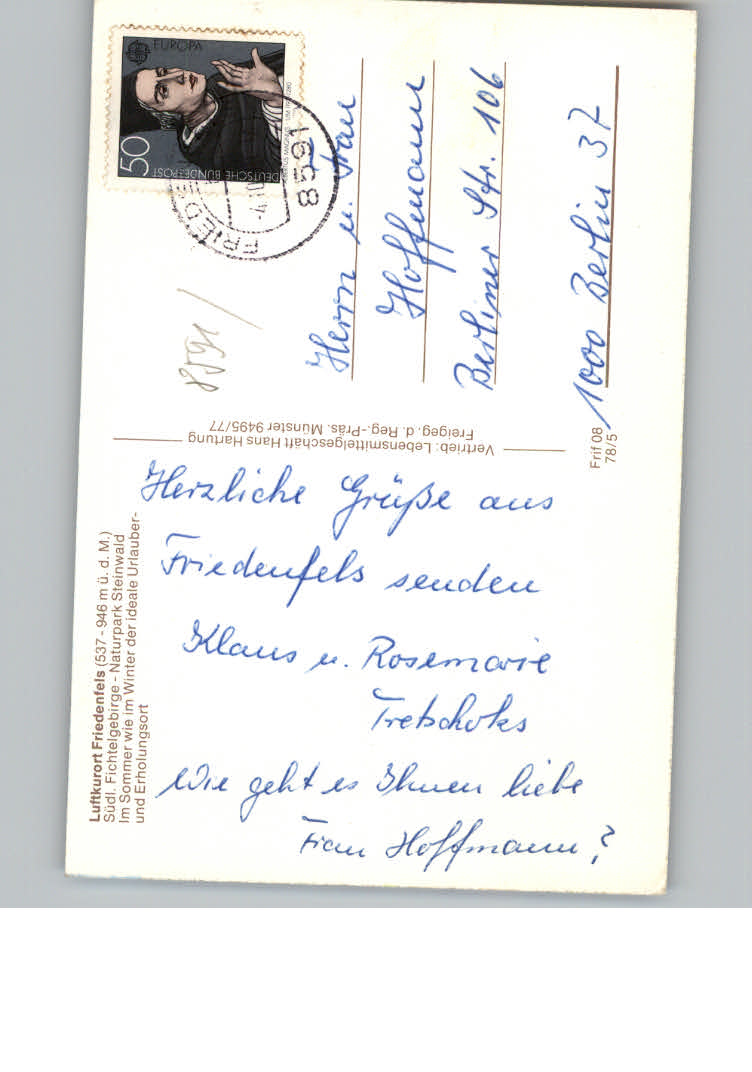 Luftkurort Friedenfels (537 - 946 m ü. d. M.)
Südl. Fichtelgebirge - Naturpark Steinwald
Im Sommer wie im Winter der ideale Urlauber-
und Erholungsort
Herzliche Grüße aus
Friedenfels senden
Klaus u. Rosemarie
Wie geht es Ihnen liebe
Frau Hoffmann?
Vertrieb: Lebensmittelgeschäft Hans Hartung
Freigeg. d. Reg.-Präs. Münster 9495/77
EUROPA
50
DEUTSCHE BUNDESPOST
8591
FRIEDE
8591
Herrn u. Frau
Hoffmann
Berliner Str. 106
1000 Berlin 37
Frif 08
78/5